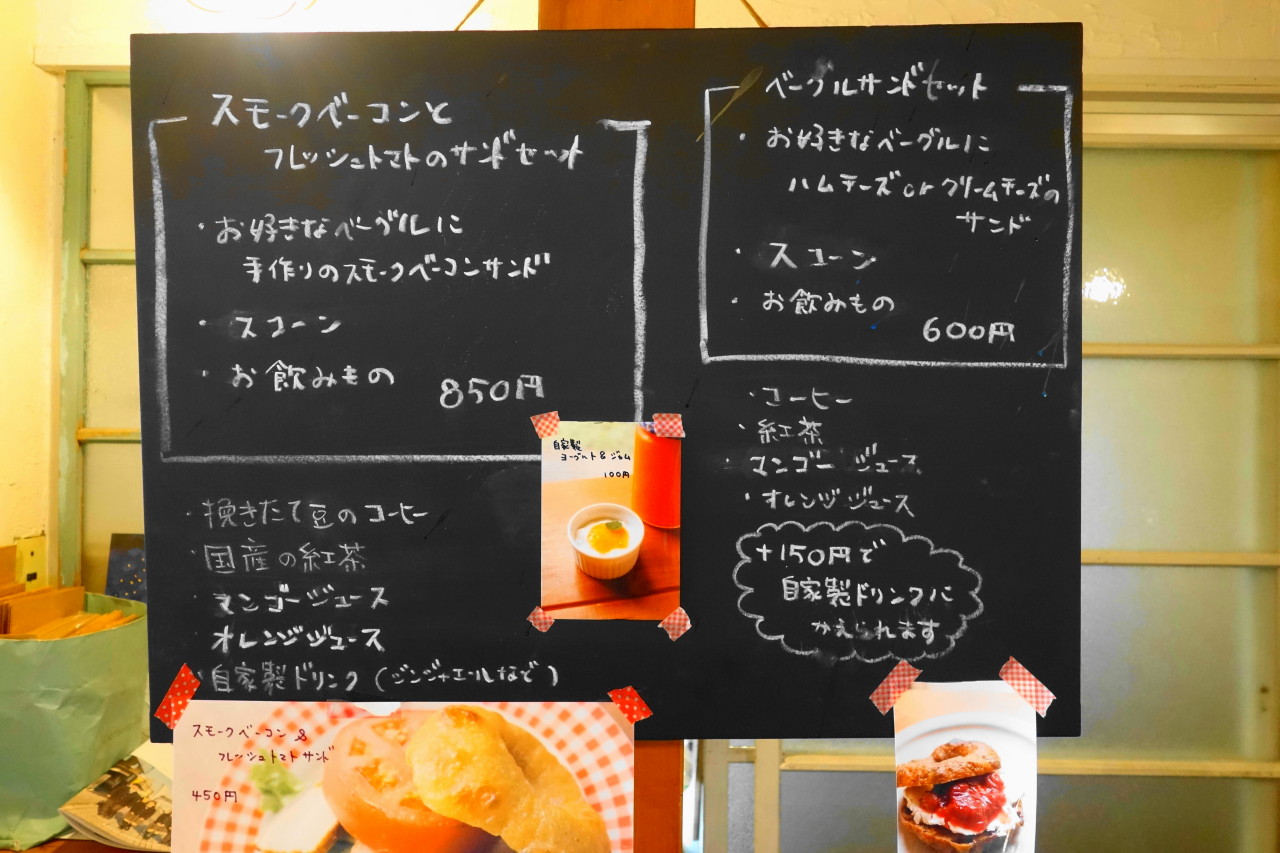 スモークベーコンと
フレッシュトマトのサンドセット
・お好きなベーグルに
手作りのスモークベーコンサンド
・スコーン
・お飲みもの
850円
・挽きたて豆のコーヒー
・国産の紅茶
・マンゴージュース
・オレンジジュース
・自家製ドリンク(ジンジャエールなど)
ベーグルサンドセット
・お好きなベーグルに
ハムチーズorクリームチーズの
サンド
・スコーン
・お飲みもの
600円
・コーヒー
・紅茶
・マンゴージュース
・オレンジジュース
+150円で
自家製ドリンクに
かえられます
自家製
ヨーグルト&ジャム
100円
スモークベーコン&
フレッシュトマトサンド
450円